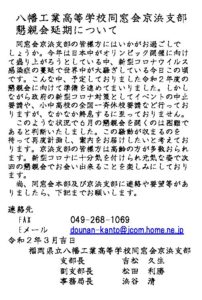 八幡工業高等学校同窓会京浜支部
懇親会延期について
同窓会京浜支部の皆様方にはいかがお過ごしで
しょうか。今年は日本中がオリンピック開催に向け
て盛り上がろうとしている中、新型コロナウイルス
感染症の蔓延で世界中が大騒ぎしている今日この頃
です。こんな中、予定しておりました令和2年度の
懇親会に向けて準備を進めてまいりました。しかし
ながら政府の新型コロナ対策としてイベントの中止
要請や、小中高校の全国一斉休校要請など行ってお
りますが、なかなか終息するに至っておりません。
このような状況で6月の懇親会を開くのは困難で
あると判断いたしました。この騒動が収まるのを
待って再度計画し、案内をお届けしたいと考えてお
ります。京浜支部の皆様方は高齢の方が多数おられ
ます。新型コロナに十分気を付けられ元気な姿で次
の懇親会でお会い出来ることを楽しみにしておりま
す。
尚、同窓会本部及び京浜支部に連絡や要望等があ
りましたら、下記までお願いします。
連絡先
FAX 049-268-1069
Eメール dounan-kanto@jcom.home.ne.jp
令和2年3月吉日
福岡県立八幡工業高等学校同窓会京浜支部
支部長 吉松 久生
副支部長 松田 利勝
事務局長 渋谷 清